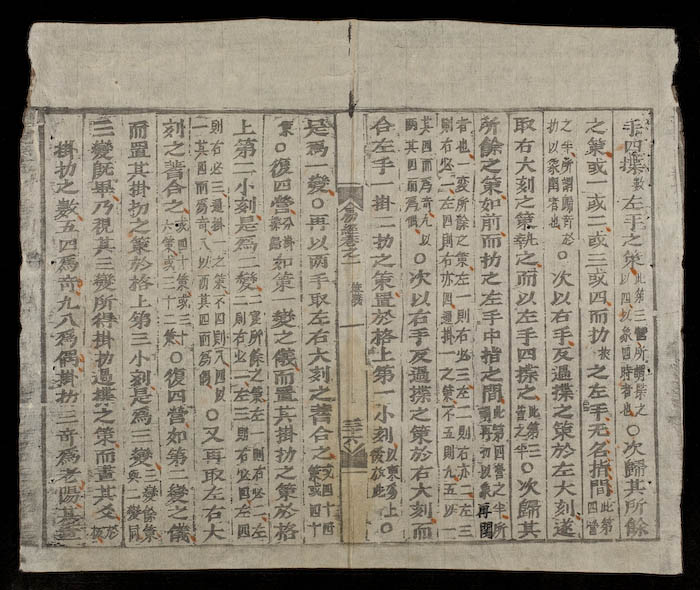 手四揲數左手之策此第三營所謂揲之以四以象四時者也○次歸其所餘
之策或一或二或三或四而扐挾之左手无名指間此第四營
之半所謂歸奇於扐以象閏者也○次以右手反過揲之策於左大刻遂
取右大刻之策執之而以左手四揲之此第三營之半○次歸其
所餘之策如前而扐之左手中指之間此第四營之半所謂再扐以象再閏
者也一變所餘之策左一則右必三左二則右亦二左三則右必一左四則右亦四通掛一之策不五則九五以一
其四而為奇九以兩其四而為偶○次以右手反過揲之策於右大刻而
合左手一掛二扐之策置於格上第一小刻以東為上後放此○
易經卷之一 筮儀 三十六
是為一變○再以兩手取左右大刻之蓍合之或四十四策或四十
策○復四營分掛揲歸如第一變之儀而置其掛扐之策於格
上第二小刻是為二變二變所餘之策左一則右必二左二則右必一左三則右必四左四
則右必三通掛一之策不四則八四以一其四而為奇八以兩其四而為偶○又再取左右大
刻之蓍合之或四十策或三十六策或三十二策○復四營如第二變之儀
而置其掛扐之策於格上第三小刻是為三變三變餘策與二變同
三變既畢乃視其三變所得掛扐過揲之策而畫其爻於版
掛扐之數五四為奇九八為偶掛扐三奇為老陽其畫